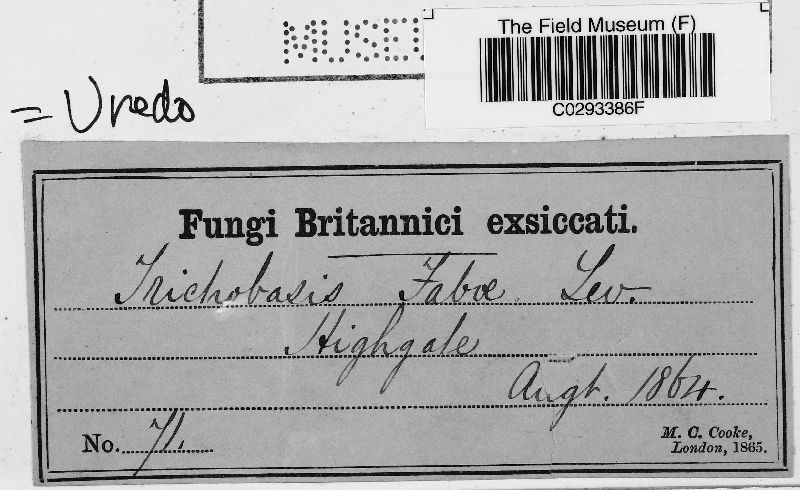 MUSEU
The Field Museum (F)
C0293386F
= Uredo
Fungi Britannici exsiccati.
Trichobasis Fabæ Lev.
Highgate
Augt. 1864.
No. 71
M. C. Cooke,
London, 1865.